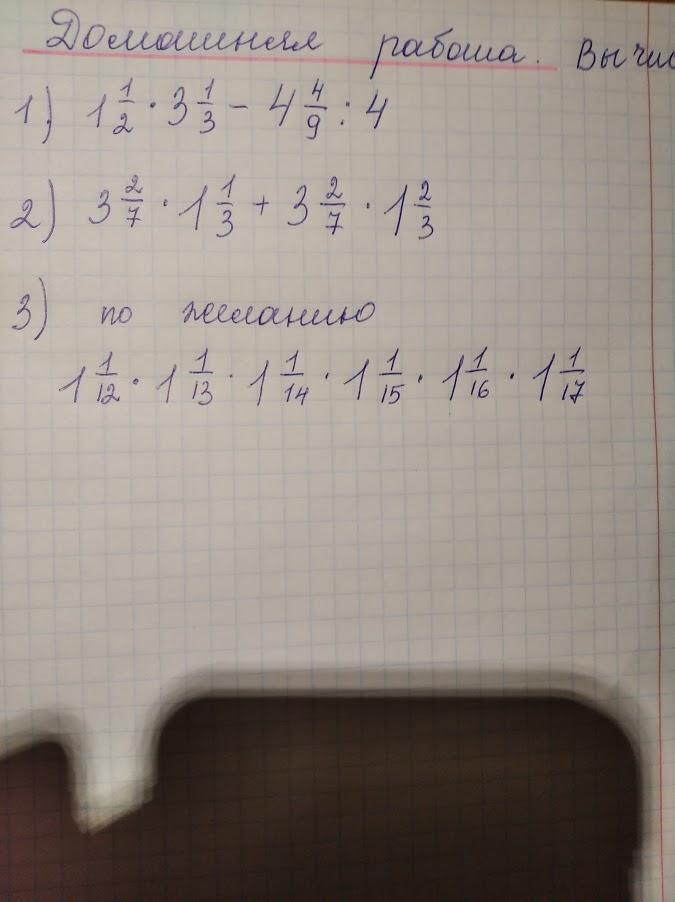 Домашняя работа. Вычис
1) 1 1/2 · 3 1/3 - 4 4/9 : 4
2) 3 2/7 · 1 1/3 + 3 2/7 · 1 2/3
3) по желанию
1 1/12 · 1 1/13 · 1 1/14 · 1 1/15 · 1 1/16 · 1 1/17